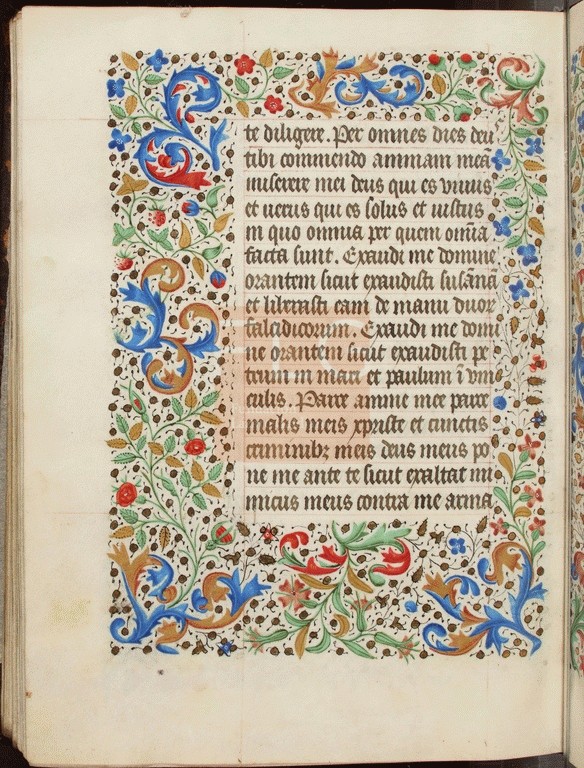 te diligere. Per omnes dies deu
tibi commendo animam meā
miserere mei deus qui es viuus
et uerus qui es solus et iustus
in quo omnia per quem om̄ia
facta sunt. Exaudi me domine
orantem sicut exaudisti susānā
et liberasti eam de manu duor
falcidicorum. Exaudi me domi
ne orantem sicut exaudisti pe
trum in mari et paulum ī vin
culis. Parce anime mee parce
malis meis xpriste et cunctis
criminibꝫ meis deus meus po
ne me ante te sicut exaltat ini
micus meus contra me arma